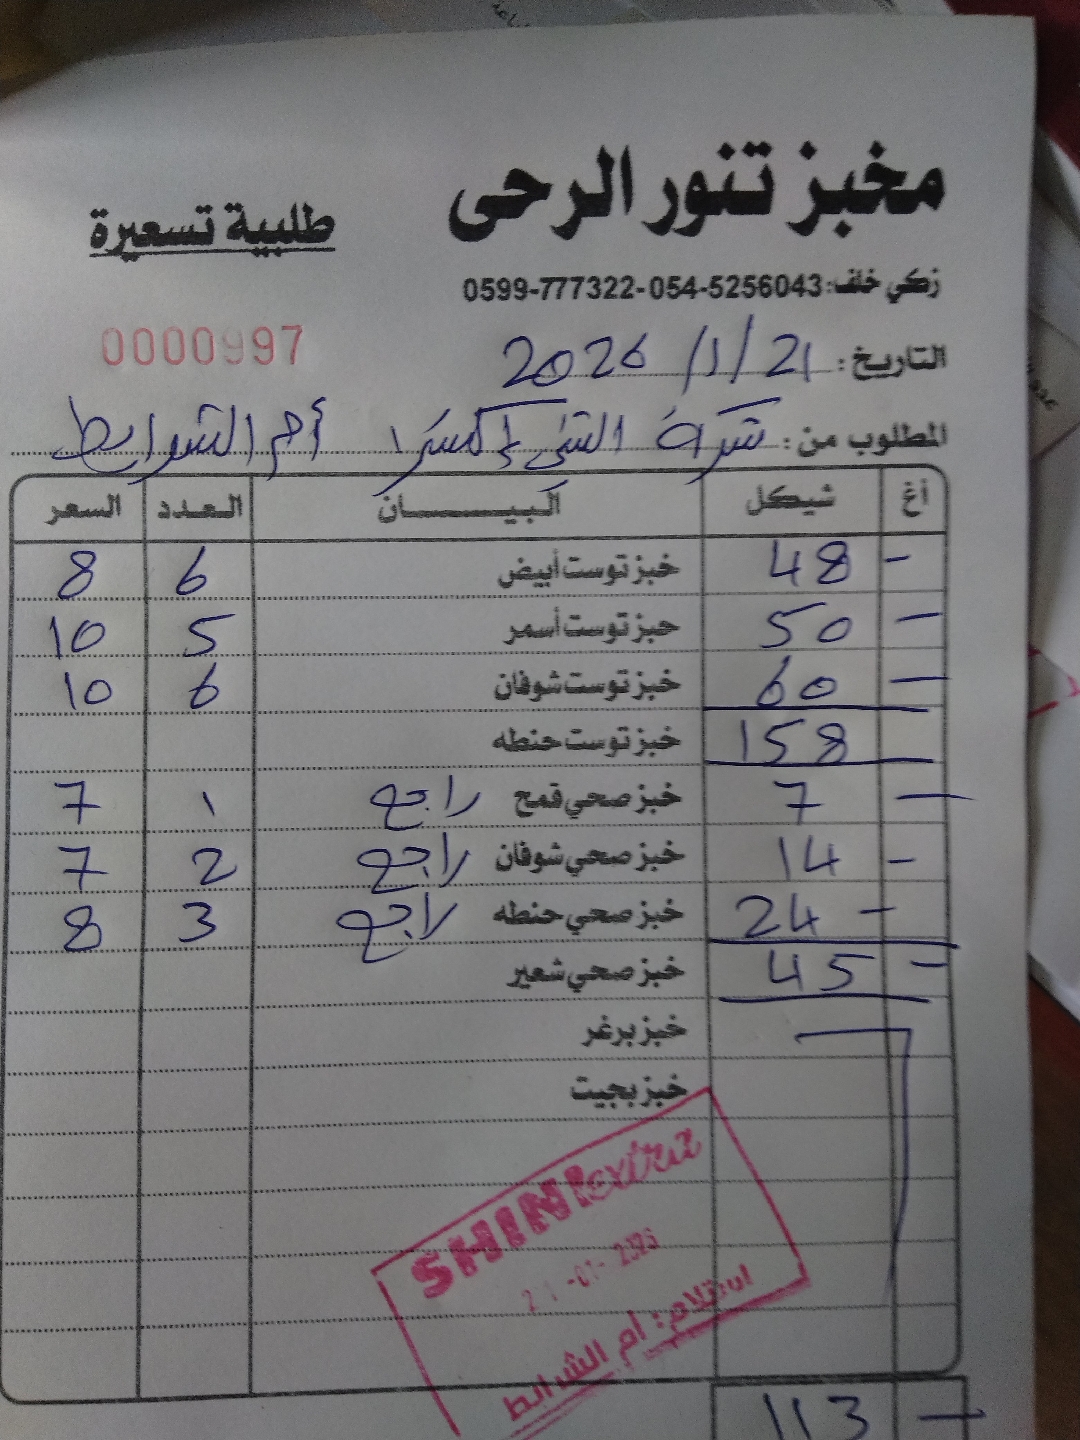 مخبز تنور الرحى
طلبية تسعيرة
زكي خلف: 0599-777322-054-5256043
0000997
التاريخ: 2026/1/21
المطلوب من: شركة الشني إكسترا أم الشرايط
أغ شيكل البيان العدد السعر
- 48 خبز توست أبيض 6 8
- 50 خبز توست أسمر 5 10
- 60 خبز توست شوفان 6 10
158 خبز توست حنطه
- 7 خبز صحي قمح راجع ١ 7
- 14 خبز صحي شوفان راجع 2 7
- 24 خبز صحي حنطه راجع 3 8
- 45 خبز صحي شعير
خبز برغر
خبز بجيت
SHINI extra
21-01-2026
استلام: ام الشرائط
113 -